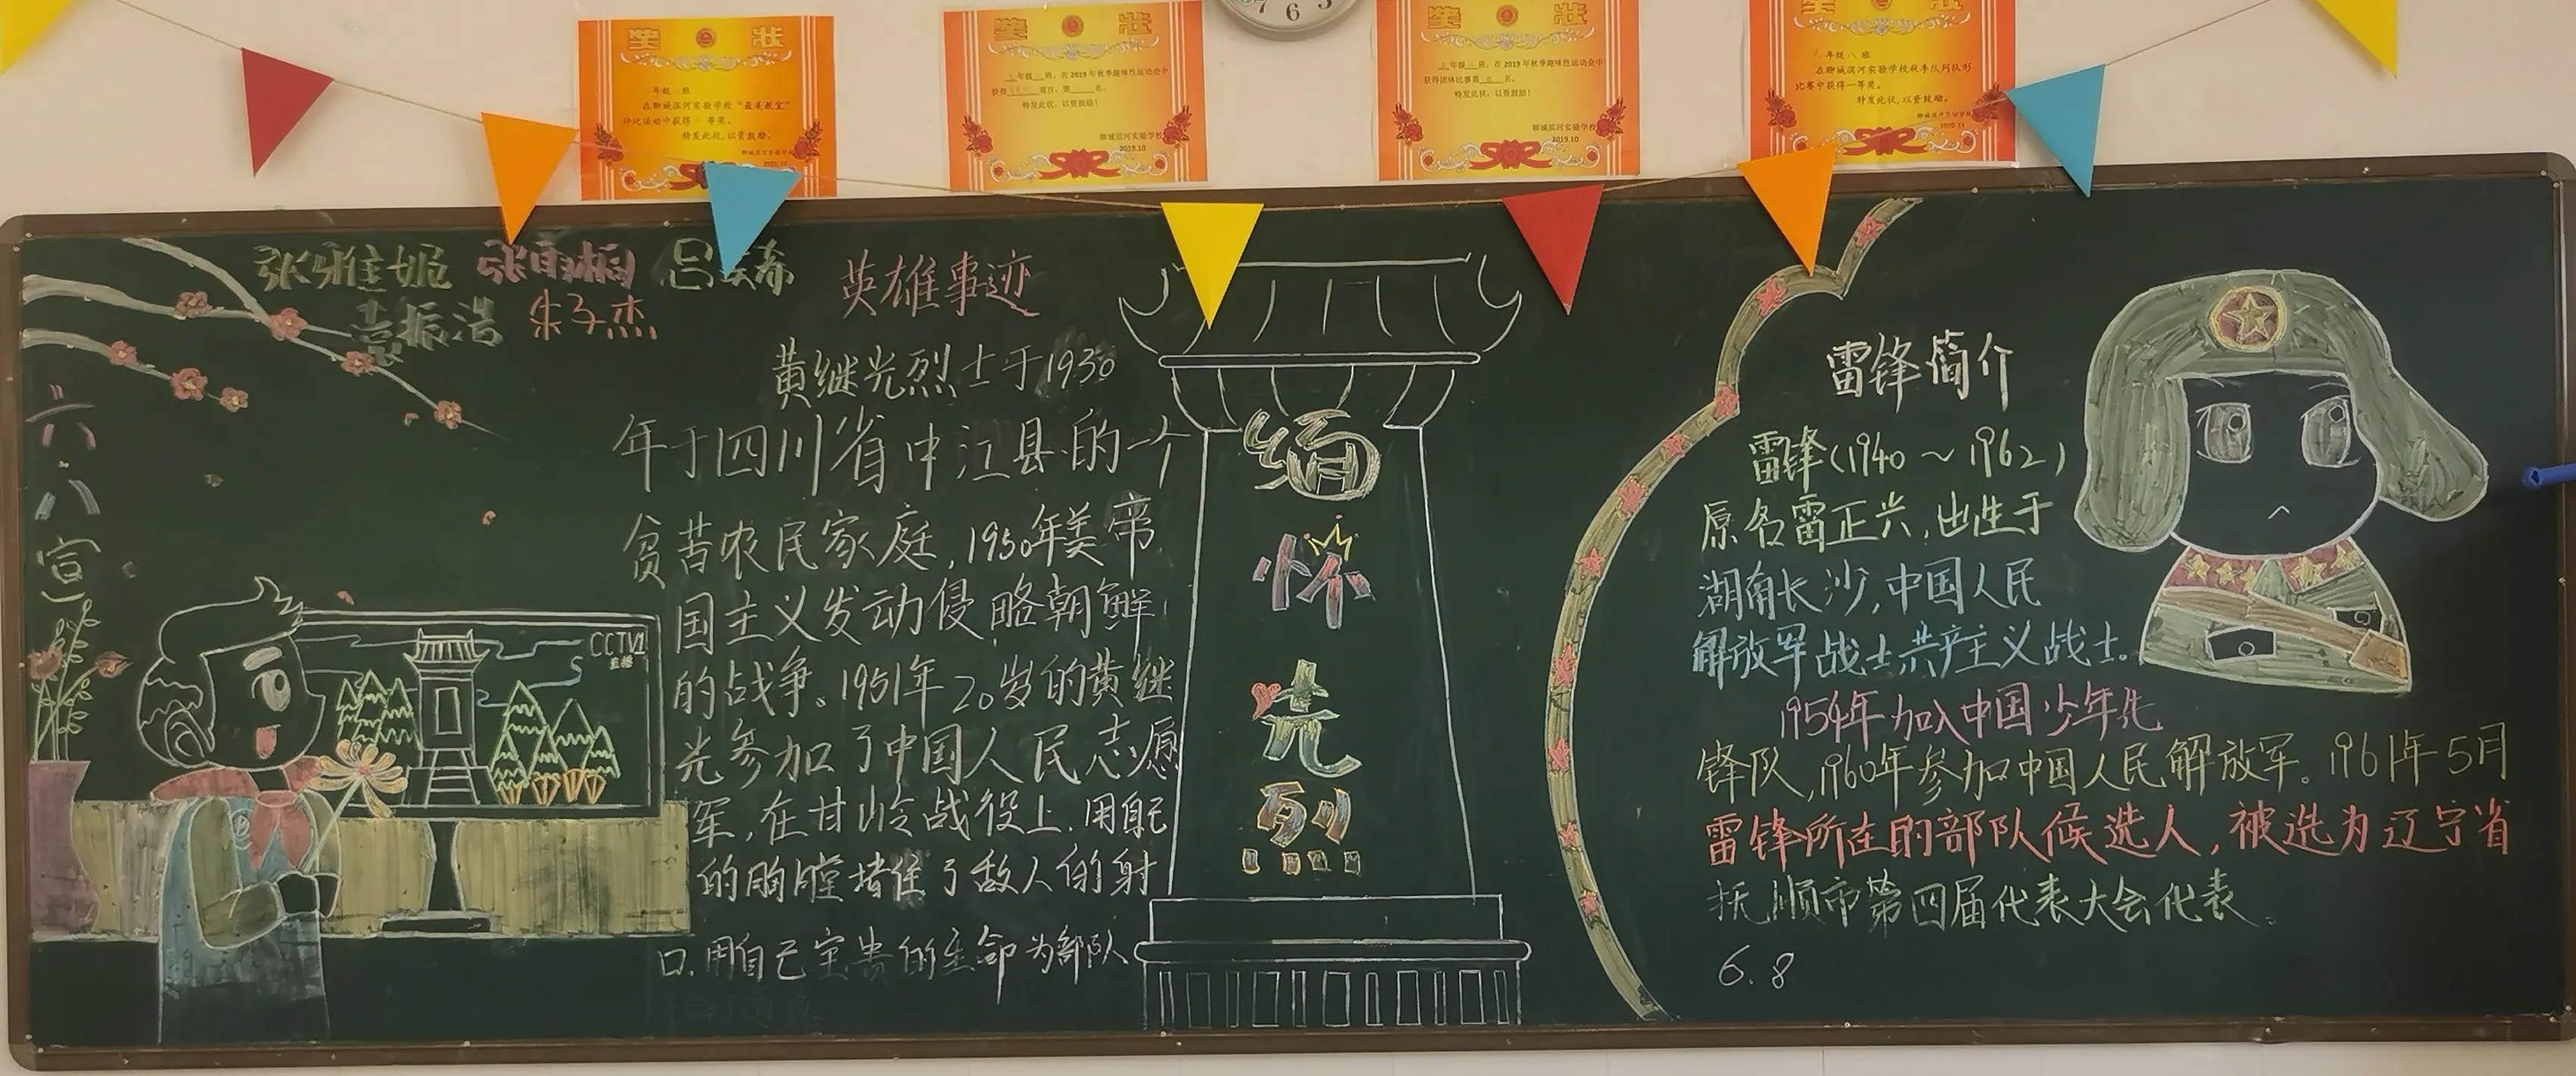 7 6 5
奖 状
在聊城滨河实验学校“最美教室”
评比活动中获得一等奖。
特发此状,以资鼓励。
奖 状
年级 班,在2019年秋季趣味性运动会中
获得 项目,第 名。
特发此状,以资鼓励!
聊城滨河实验学校
2019.10
奖 状
年级 班,在2019年秋季趣味性运动会中
获得团体比赛第 名。
特发此状,以资鼓励!
聊城滨河实验学校
2019.10
奖 状
年级八班
在聊城滨河实验学校秋季队列队形
比赛中获得一等奖。
特发此状,以资鼓励。
2020.11
张雅妮 张雨桐 吕 希
袁振浩 朱子杰
六.八宣
CCTV1
直播
英雄事迹
黄继光烈士于1930
年于四川省中江县的一个
贫苦农民家庭,1950年美帝
国主义发动侵略朝鲜
的战争。1951年20岁的黄继
光参加了中国人民志愿
军,在甘岭战役上.用自己
的胸膛堵住了敌人的射
口.用自己宝贵的生命为部队
缅怀先烈
雷锋简介
雷锋(1940~1962)
原名雷正兴,出生于
湖南长沙,中国人民
解放军战士共产主义战士。
1954年加入中国少年先
锋队,1960年参加中国人民解放军。1961年5月
雷锋所在的部队候选人,被选为辽宁省
抚顺市第四届代表大会代表。
6.8